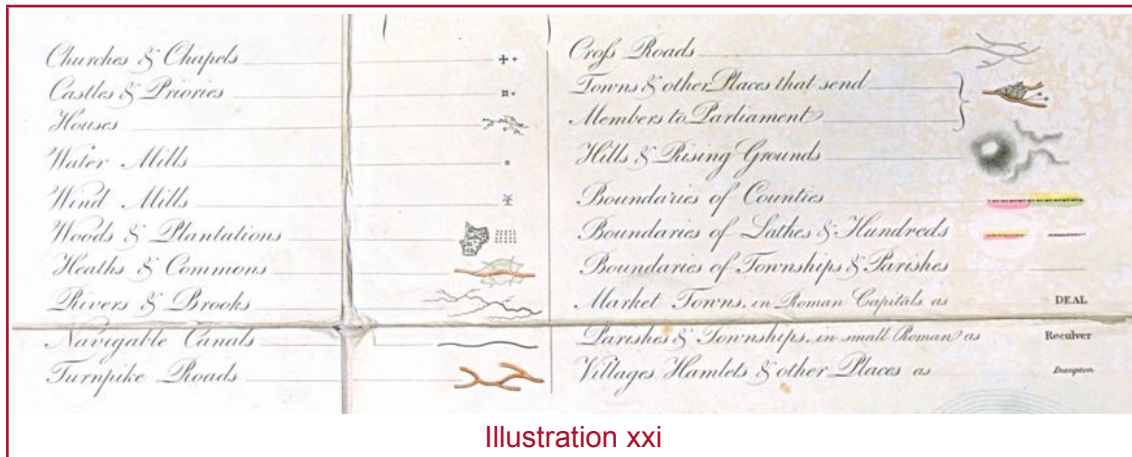 Churches & Chapels
Castles & Priories
Houses
Water Mills
Wind Mills
Woods & Plantations
Heaths & Commons
Rivers & Brooks
Navigable Canals
Turnpike Roads
Croſs Roads
Towns & other Places that send
Members to Parliament
Hills & Rising Grounds
Boundaries of Counties
Boundaries of Lathes & Hundreds
Boundaries of Townships & Parishes
Market Towns, in Roman Capitals as DEAL
Parishes & Townships, in small Roman as Reculver
Villages Hamlets & other Places as
Illustration xxi